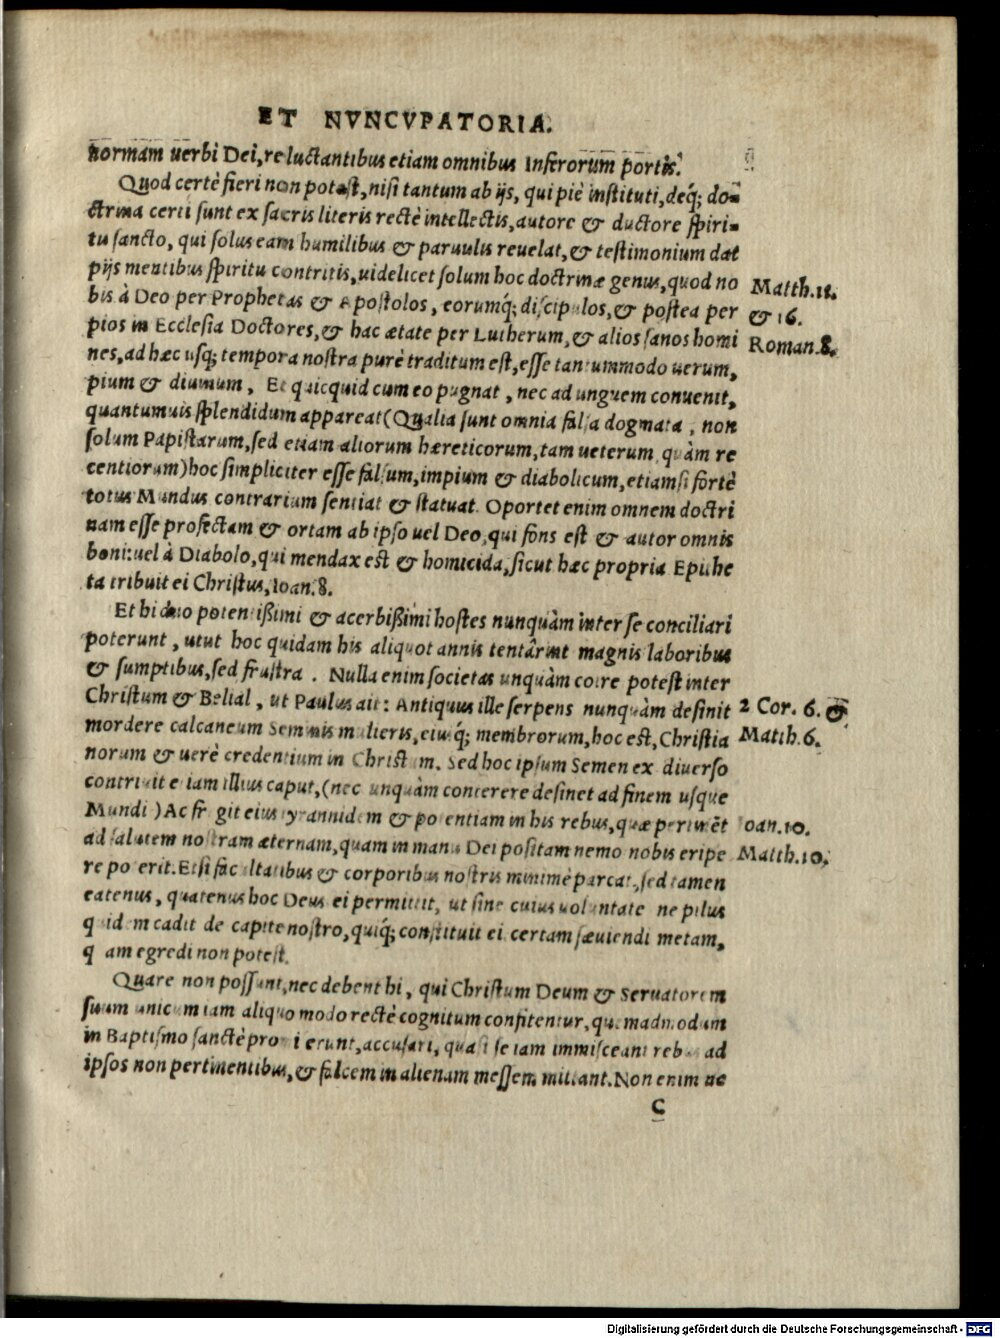 ET NVNCVPATORIA.
normam uerbi Dei, reluctantibus etiam omnibus Inferorum portis.
Quod certè fieri non potest, nisi tantum ab ijs, qui piè instituti, deq́; do-
ctrina certi sunt ex sacris literis rectè intellectis, autore & ductore spiri-
tu sancto, qui solus eam humilibus & paruulis reuelat, & testimonium dat
pijs mentibus spiritu contritis, uidelicet solum hoc doctrinæ genus, quod no
bis à Deo per Prophetas & Apostolos, eorumq́; discipulos, & postea per
pios in Ecclesia Doctores, & hac ætate per Lutherum, & alios sanos homi
nes, ad hæc usq; tempora nostra purè traditum est, esse tantummodo uerum,
pium & diuinum, Et quicquid cum eo pugnat, nec ad unguem conuenit,
quantumuis splendidum appareat (Qualia sunt omnia falsa dogmata, non
solum Papistarum, sed etiam aliorum hæreticorum, tam ueterum quàm re
centiorum) hoc simpliciter esse falsum, impium & diabolicum, etiamsi fortè
totus Mundus contrarium sentiat & statuat. Oportet enim omnem doctri
nam esse profectam & ortam ab ipso uel Deo, qui fons est & autor omnis
boni: uel à Diabolo, qui mendax est & homicida, sicut hæc propria Epithe
ta tribuit ei Christus, Ioan. 8.
Et hi duo potentißimi & acerbißimi hostes nunquàm inter se conciliari
poterunt, utut hoc quidam his aliquot annis tentârint magnis laboribus
& sumptibus, sed frustra. Nulla enim societas unquàm coire potest inter
Christum & Belial, ut Paulus ait: Antiquus ille serpens nunquàm definit
mordere calcaneum Seminis mulieris, eiusq́; membrorum, hoc est, Christia
norum & uerè credentium in Christum. Sed hoc ipsum Semen ex diuerso
contriuit etiam illius caput, (nec unquàm conterere desinet ad finem usque
Mundi) Ac fregit eius tyrannidem & potentiam in his rebus, quæ pertinẽt
ad salutem nostram æternam, quam in manu Dei positam nemo nobis eripe
re poterit. Etsi facultatibus & corporibus nostris minimè parcat, sed tamen
eatenus, quatenus hoc Deus ei permittit, ut sine cuius uoluntate ne pilus
quidem cadit de capite nostro, quiq́; constituit ei certam sæuiendi metam,
quam egredi non potest.
Quare non possunt, nec debent hi, qui Christum Deum & Seruatorem
suum unicum iam aliquo modo rectè cognitum confitentur, quemadmodum
in Baptismo sanctè promiserunt, accusari, quasi se iam immisceant rebus ad
ipsos non pertinentibus, & falcem in alienam messem mittant. Non enim ne
C
Matth. 11.
& 16.
Roman. 8.
2 Cor. 6. &
Matth. 6.
Ioan. 10.
Matth. 10.
Digitalisierung gefördert durch die Deutsche Forschungsgemeinschaft - DFG